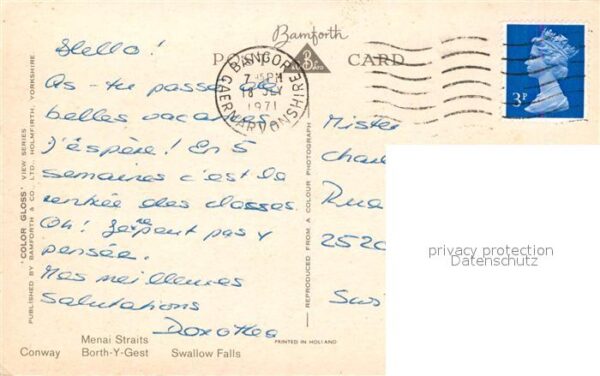 Bamforth
POST CARD
BANGOR
7 45 PM
1971
CAERNARVONSHIRE
3P
Hello!
As-tu passé des
belles vacances
j'espère! En 5
semaines c'est la
rentrée des classes.
Oh! Je ne peut pas y
pensée.
Mes meilleures
salutations
Dorothea
Mister
Rua
2520
privacy protection
Datenschutz
'COLOR GLOSS' VIEW SERIES
PUBLISHED BY BAMFORTH & CO., LTD., HOLMFIRTH, YORKSHIRE
REPRODUCED FROM A COLOUR PHOTOGRAPH
PRINTED IN HOLLAND
Menai Straits
Conway Borth-Y-Gest Swallow Falls